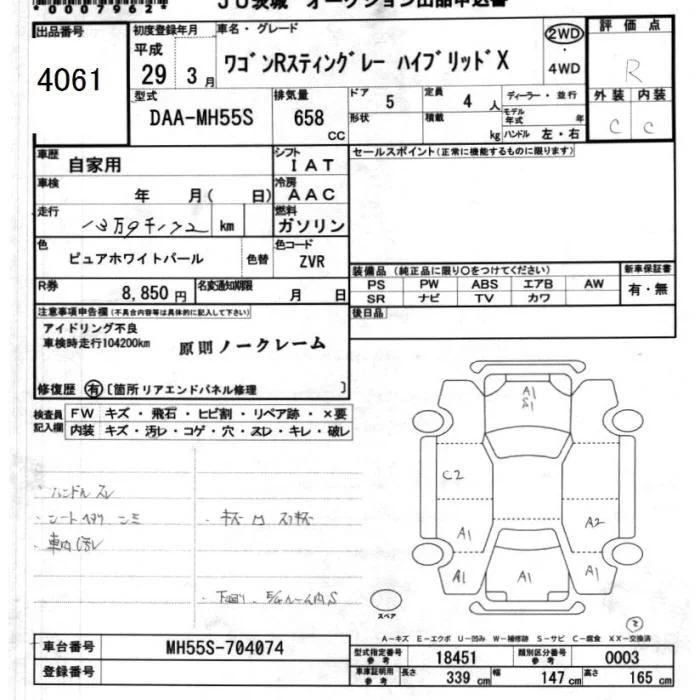 *0007962*
JU茨城 オークション出品申込書
出品番号
4061
初度登録年月
平成
29 3月
車名・グレード
ワゴンRスティングレー ハイブリッドX
2WD
・
4WD
評価点
R
外装 内装
C C
型式
DAA-MH55S
排気量
658
CC
ドア
5
定員
4 人
形状
積載
kg
ディーラー・並行
モデル年式 年
ハンドル 左・右
車歴
自家用
シフト
IAT
車検
年 月( 日)
冷房
AAC
走行
13万9千172 km
燃料
ガソリン
色
ピュアホワイトパール
色替
色コード
ZVR
R券
8,850円
名変通知期限
月 日
セールスポイント(正常に機能するものに限ります)
装備品 (純正品に限り○をつけてください)
PS PW ABS エアB AW
SR ナビ TV カワ
新車保証書
有・無
後日品
注意事項申告欄(不具合内容等は具体的に記入して下さい)
アイドリング不良
車検時走行104200km
原則ノークレーム
修復歴 有 〔箇所 リアエンドパネル修理 〕
検査員記入欄
FW キズ・飛石・ヒビ割・リペア跡・×要
内装 キズ・汚レ・コゲ・穴・スレ・キレ・破レ
・ハンドル スレ
・シートヘタリ シミ
・車内汚レ
・下廻り
A1
S1
C2
A1
A2
A1
A1
A1
A1
スペア
2
A-キズ E-エクボ U-凹み W-補修跡 S-サビ C-腐食 XX-交換済
車台番号
MH55S-704074
登録番号
型式指定番号 参考
18451
類別区分番号 参考
0003
車庫証明用 参考
長さ 339 cm 幅 147 cm 高さ 165 cm